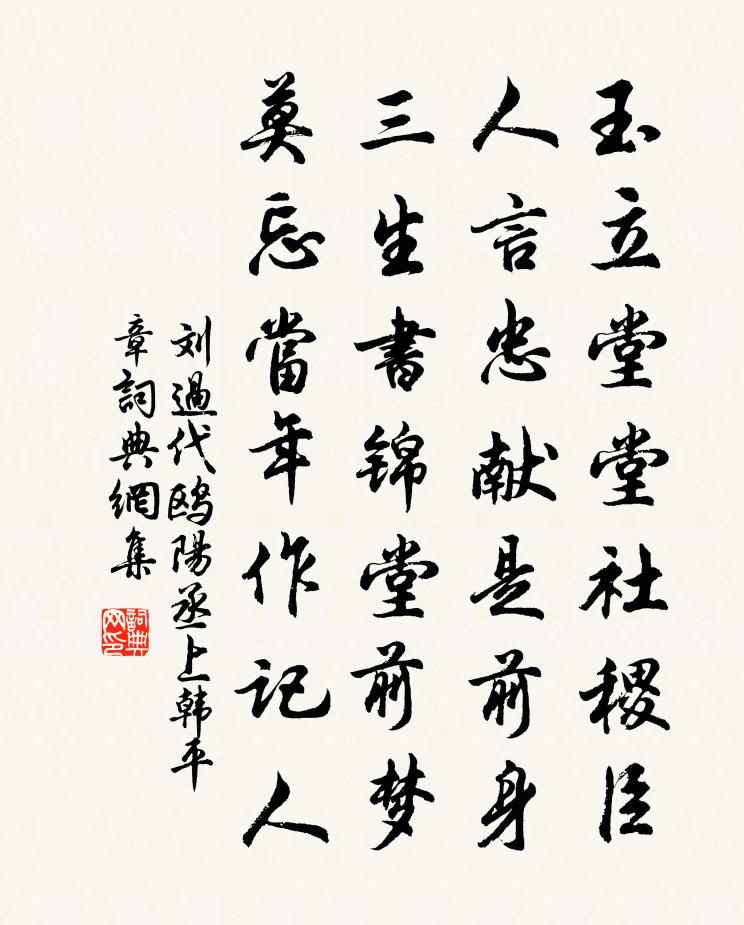 玉立堂堂社稷臣
人言忠献是前身
三生書锦堂前梦
莫忘當年作记人
刘過代鸥陽丞上韩平
章詞典網集
詞典网印